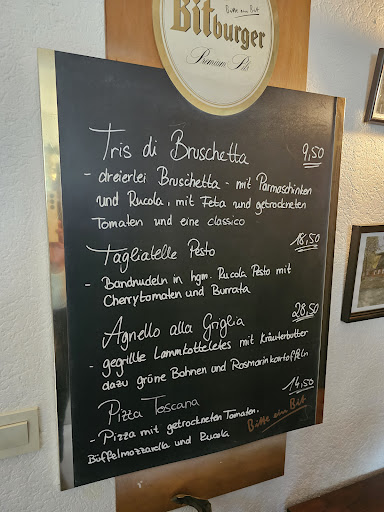 Bitte ein Bit
Bitburger
Premium Pils
Tris di Bruschetta 9,50
- dreierlei Bruschetta - mit Parmaschinken
und Rucola, mit Feta und getrockneten
Tomaten und eine classico
Tagliatelle Pesto 18,50
- Bandnudeln in hgm. Rucola Pesto mit
Cherrytomaten und Burrata
Agnello alla Griglia 28,50
- gegrillte Lammkotteletes mit Kräuterbutter
dazu grüne Bohnen und Rosmarinkartoffeln
Pizza Toscana 14,50
- Pizza mit getrockneten Tomaten.
Büffelmozzarella und Rucola
Bitte ein Bit